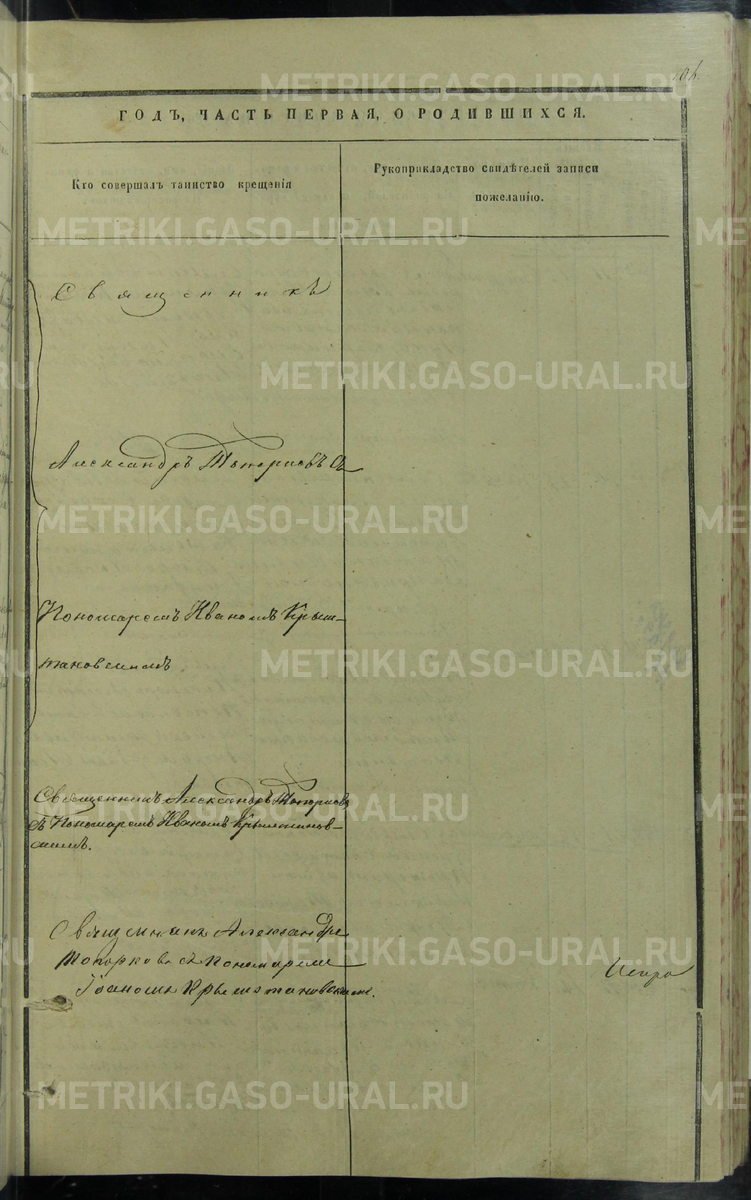 106.
ГОДЪ, ЧАСТЬ ПЕРВАЯ, О РОДИВШИХСЯ.
Кто совершалъ таинство крещенія
Рукоприкладство свидѣтелей записи
пожеланію.
Священникъ
Александръ Топорковъ съ
Пономаремъ Иваномъ Крыж-
тановскимъ
Священникъ Александръ Топорковъ
съ Пономаремъ Иваномъ Крыжтанов-
скимъ.
Священникъ Александръ
Топорковъ съ Пономаремъ
Іоанномъ
METRIKI.GASO-URAL.RU